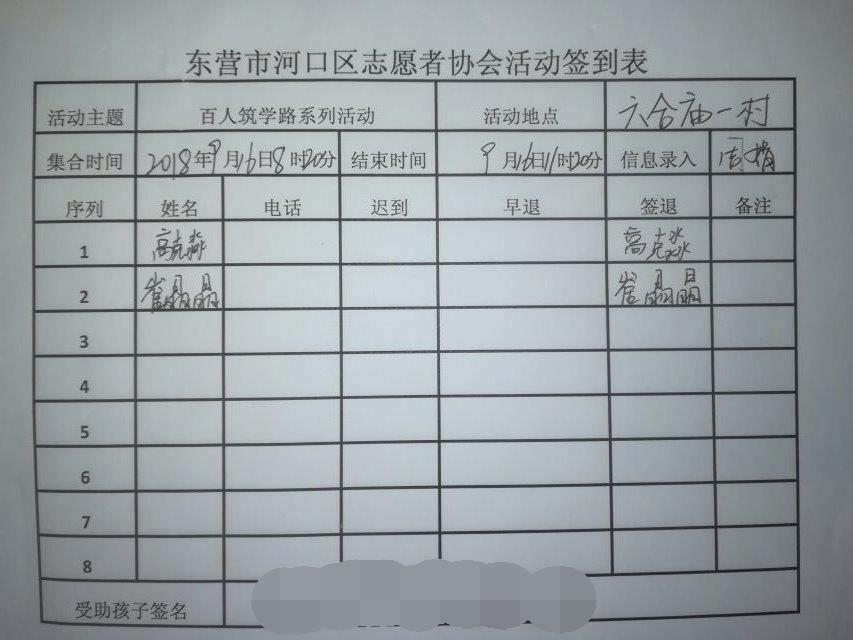 东营市河口区志愿者协会活动签到表
活动主题 百人筑学路系列活动 活动地点 六合庙一村
集合时间 2018年9月16日8时20分 结束时间 9月16日11时20分 信息录入 周娟
序列 姓名 电话 迟到 早退 签退 备注
1 高克淼 高克淼
2 崔晶晶 崔晶晶
3
4
5
6
7
8
受助孩子签名